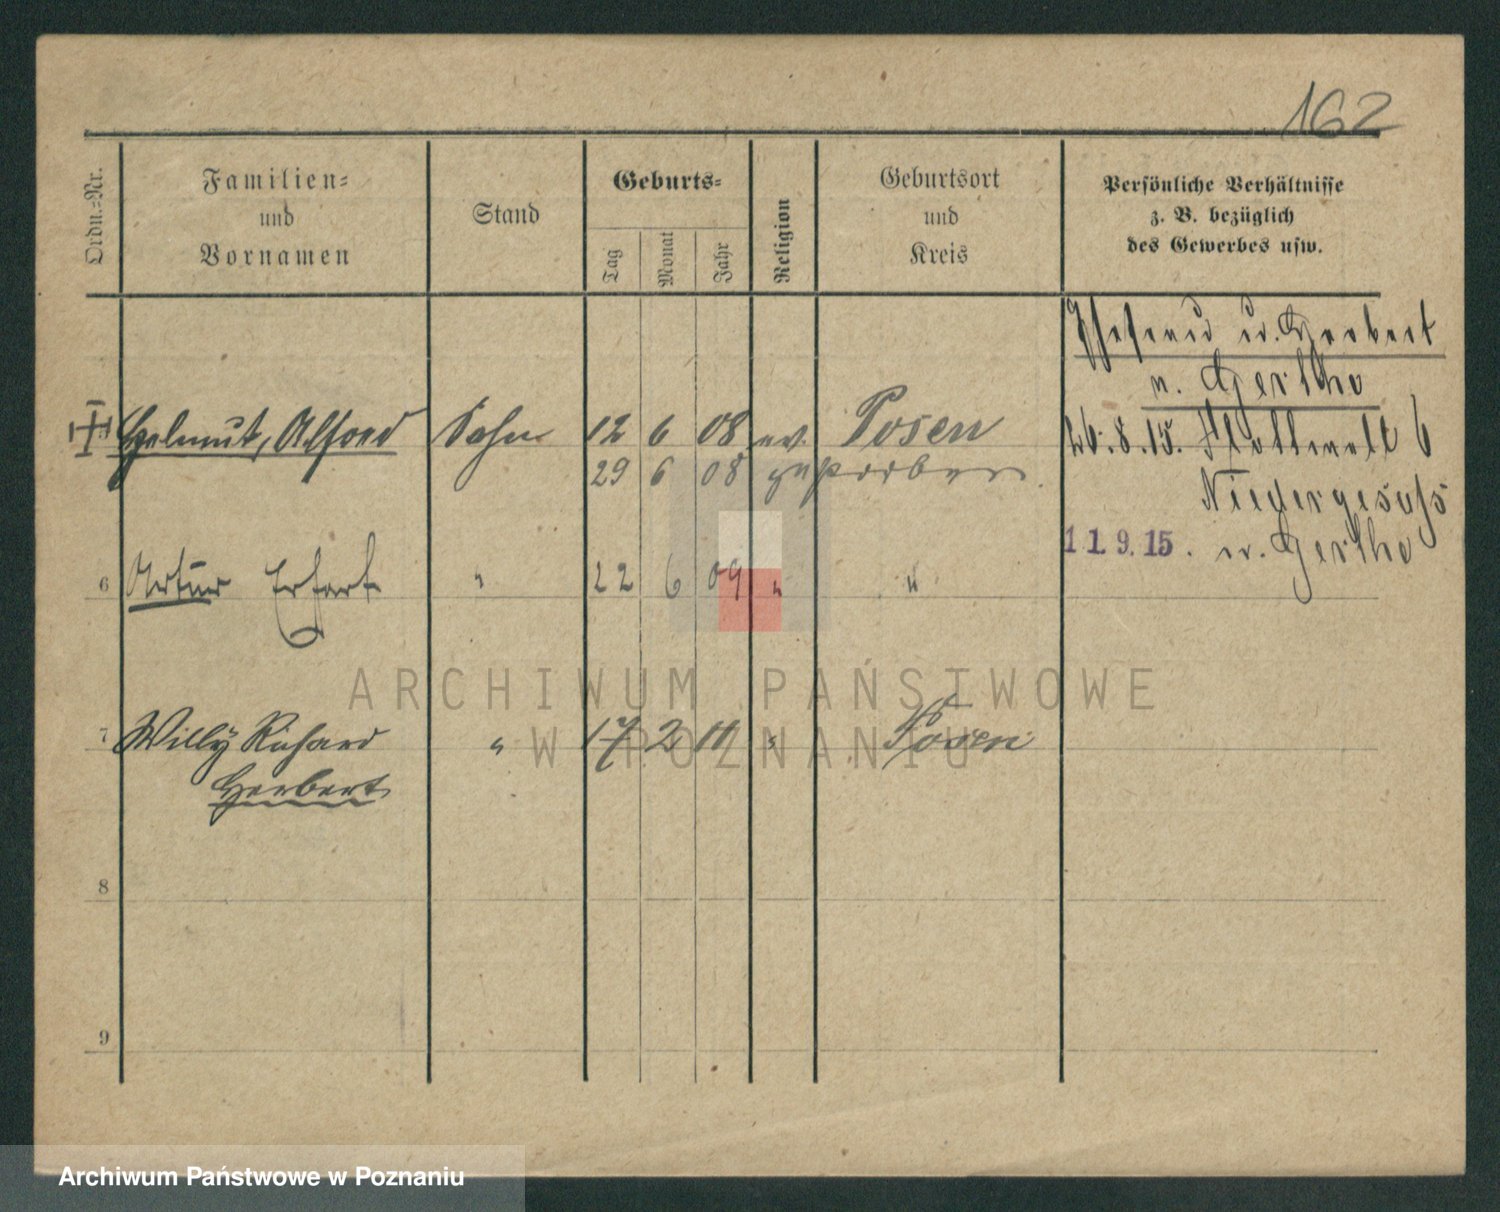 162
Ordn.-Nr.
Familien-
und
Vornamen
Stand
Geburts-
Tag
Monat
Jahr
Religion
Geburtsort
und
Kreis
Persönliche Verhältnisse
z. B. bezüglich
des Gewerbes usw.
Ehefrau u. Herbert
n. Gertha
Helmut, Alfred Sohn 12 6 08 ev. Posen 26.8.15. Flottwell 6
29 6 08 gestorben.
Niedergesäß
11.9.15. n. Gertha
6 Artur Erhart " 22 6 09 " "
7 Willy Richard " 17 2 11 " Posen
Herbert
8
9
ARCHIWUM PAŃSTWOWE
W POZNANIU
Archiwum Państwowe w Poznaniu